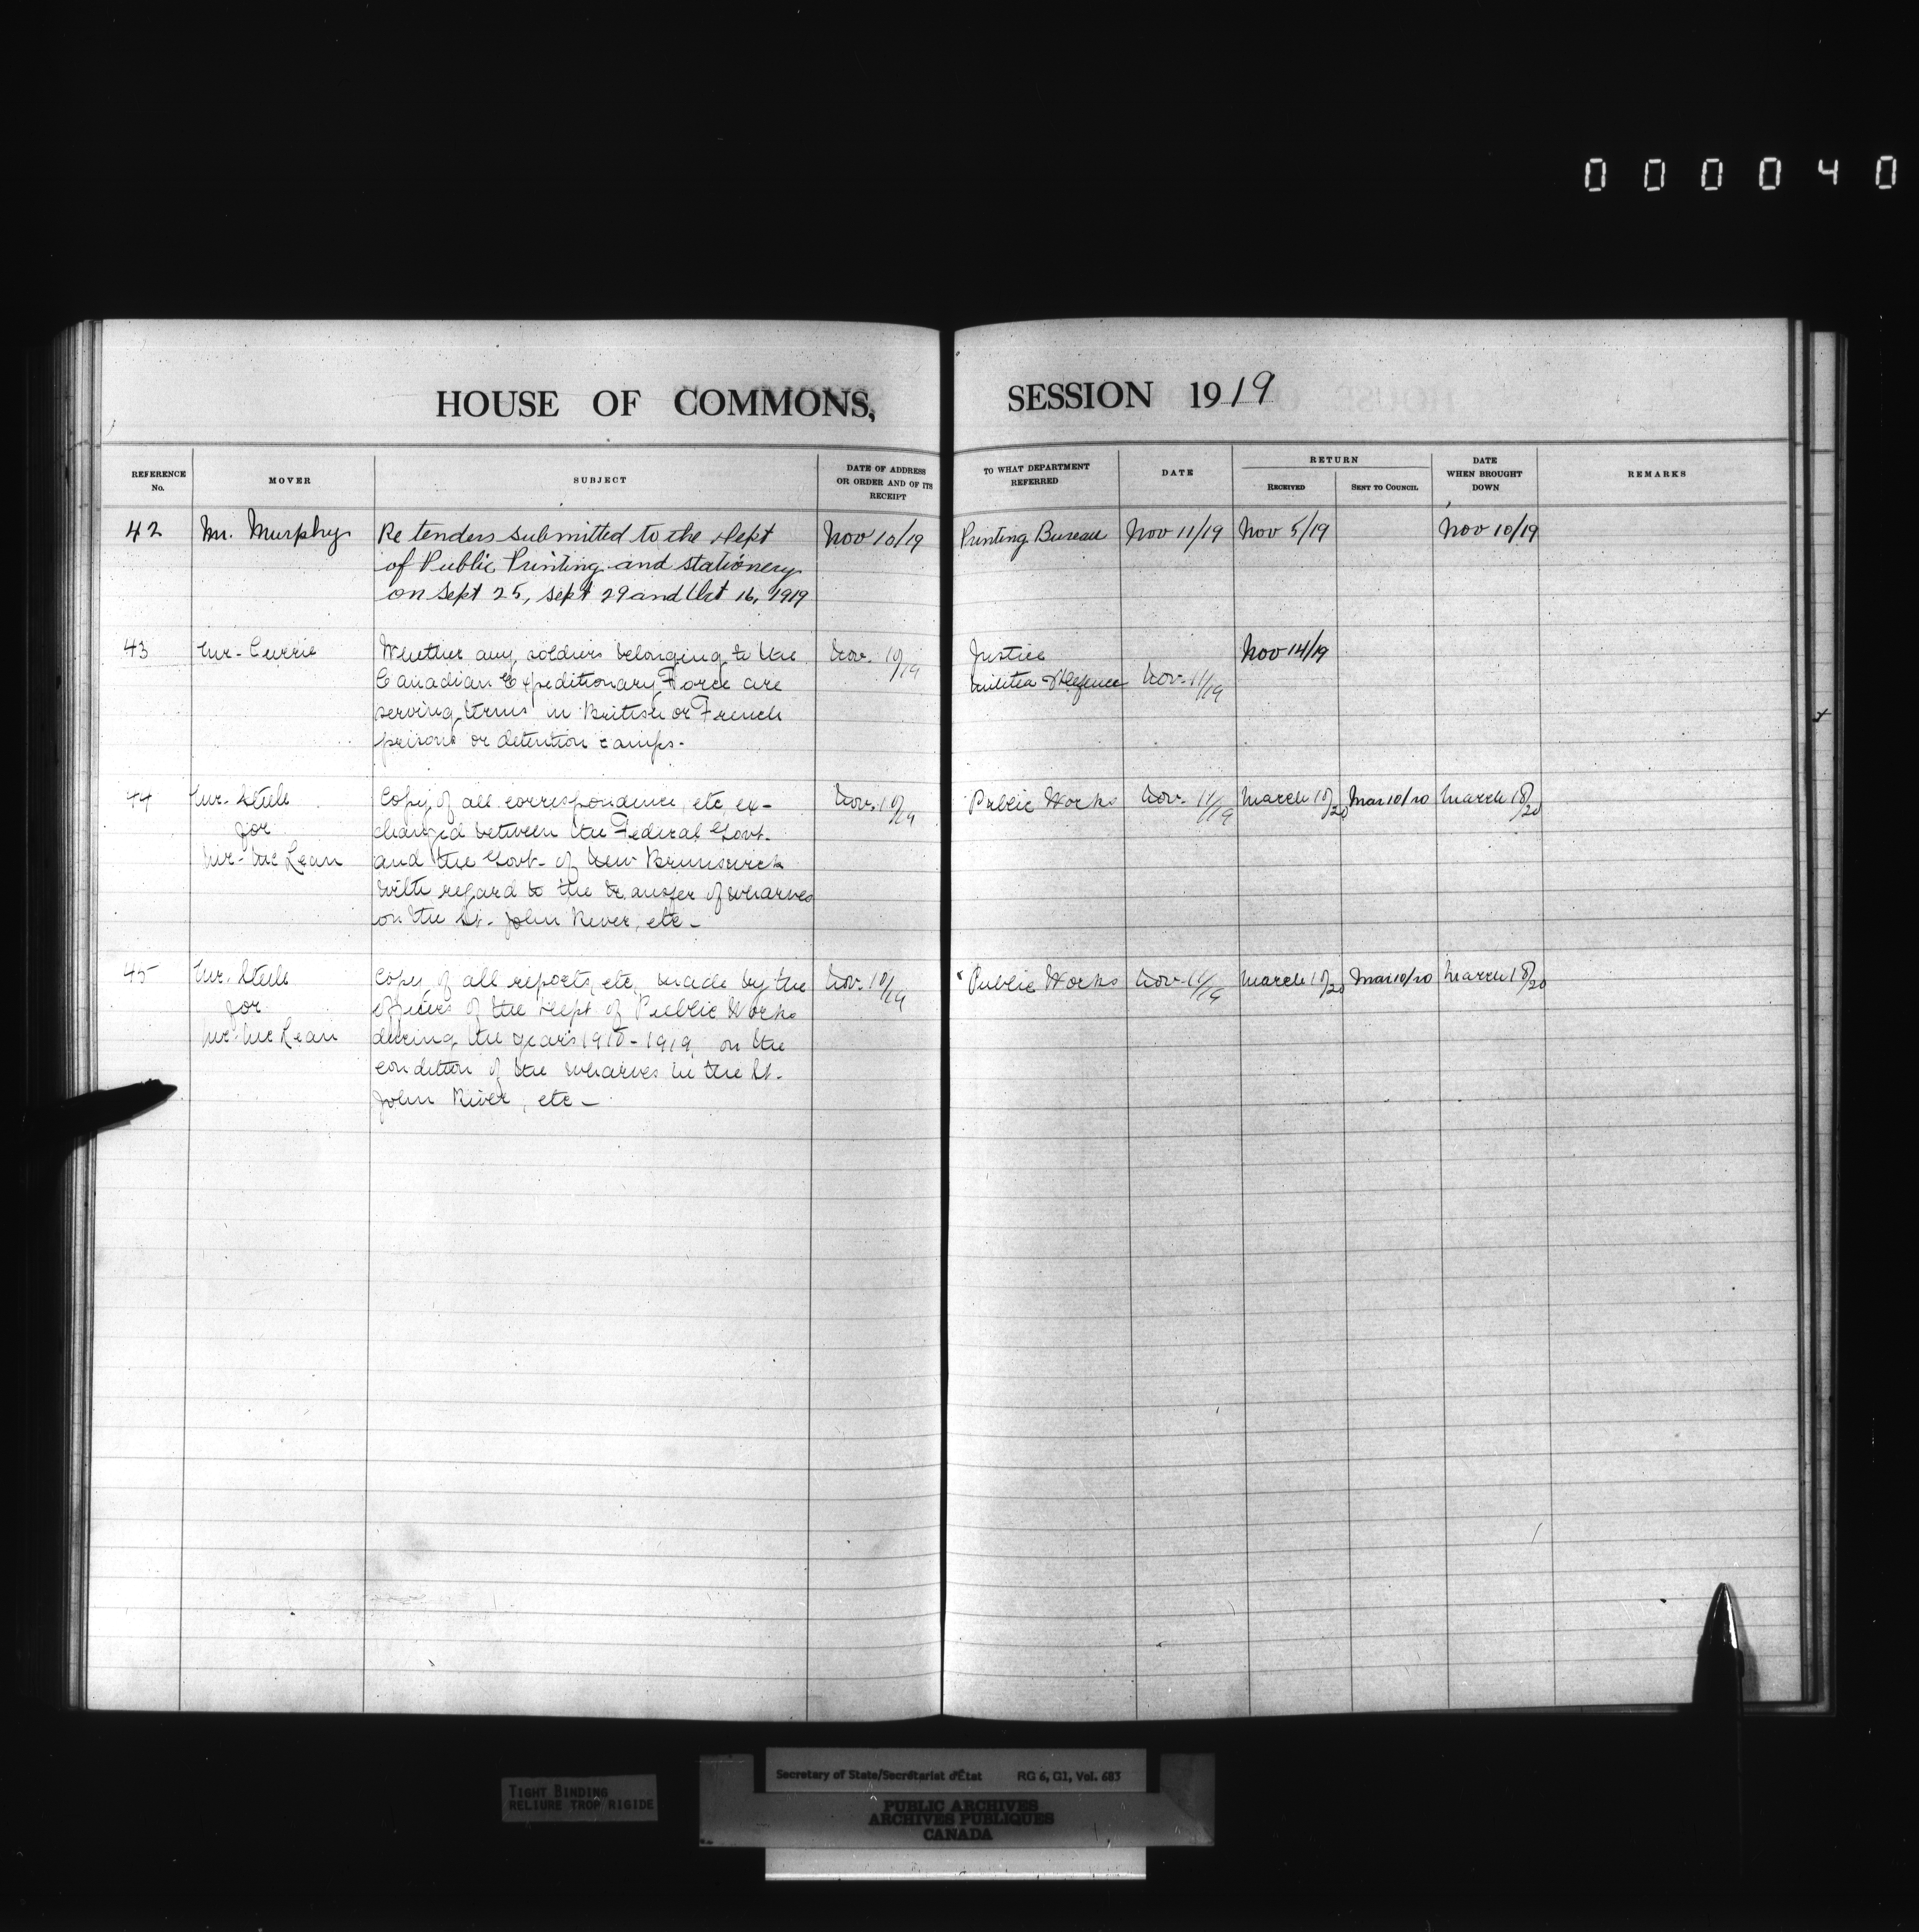 000040
HOUSE OF COMMONS, SESSION 1919
REFERENCE No. MOVER SUBJECT DATE OF ADDRESS OR ORDER AND OF ITS RECEIPT TO WHAT DEPARTMENT REFERRED DATE RETURN RECEIVED SENT TO COUNCIL DATE WHEN BROUGHT DOWN REMARKS
42 Mr. Murphy Re tenders submitted to the Dept Nov 10/19 Printing Bureau Nov 11/19 Nov 5/19 Nov 10/19
of Public Printing and stationery
on Sept 25, Sept 29 and Oct 16, 1919
43 Mr. Currie Whether any soldiers belonging to the Nov. 10/19 Justice Nov 14/19
Canadian Expeditionary Force are Militia & Defence Nov. 11/19
serving terms in British or French
prisons or detention camps.
44 Mr. Steele Copy of all correspondence, etc ex- Nov. 10/19 Public Works Nov. 11/19 March 10/20 Mar 10/20 March 18/20
for changed between the Federal Govt.
Mr. McLean and the Govt. of New Brunswick
with regard to the transfer of wharves
on the St. John River, etc -
45 Mr. Steele Copy of all reports, etc, made by the Nov. 10/19 Public Works Nov. 11/19 March 10/20 Mar 10/20 March 18/20
for officers of the Dept of Public Works
Mr. McLean during the years 1918-1919, on the
condition of the wharves in the St.
John River, etc -
TIGHT BINDING
RELIURE TROP RIGIDE
Secretary of State/Secrétariat d'État RG 6, G1, Vol. 683
PUBLIC ARCHIVES
ARCHIVES PUBLIQUES
CANADA